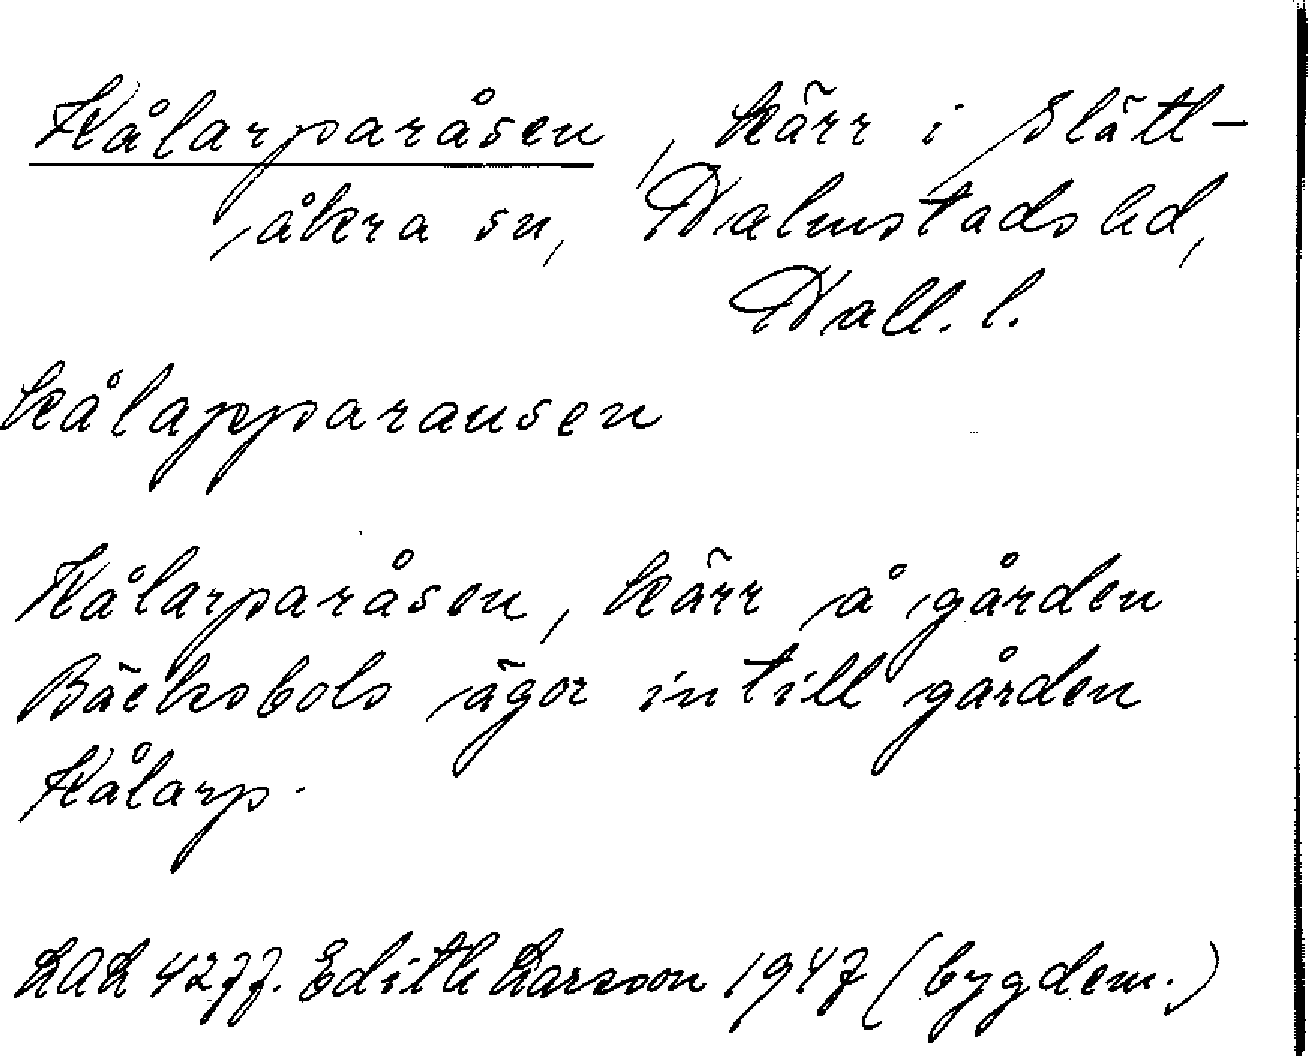 Kålarparåsen, kärr i Slätt-
åkra sn, Halmstads hd,
Hall. l.
kålapparausen
Kålarparåsen, kärr å gården
Bäcksbols ägor intill gården
Kålarp.
LAL 4277. Edith Larsson 1947 (bygdem.)